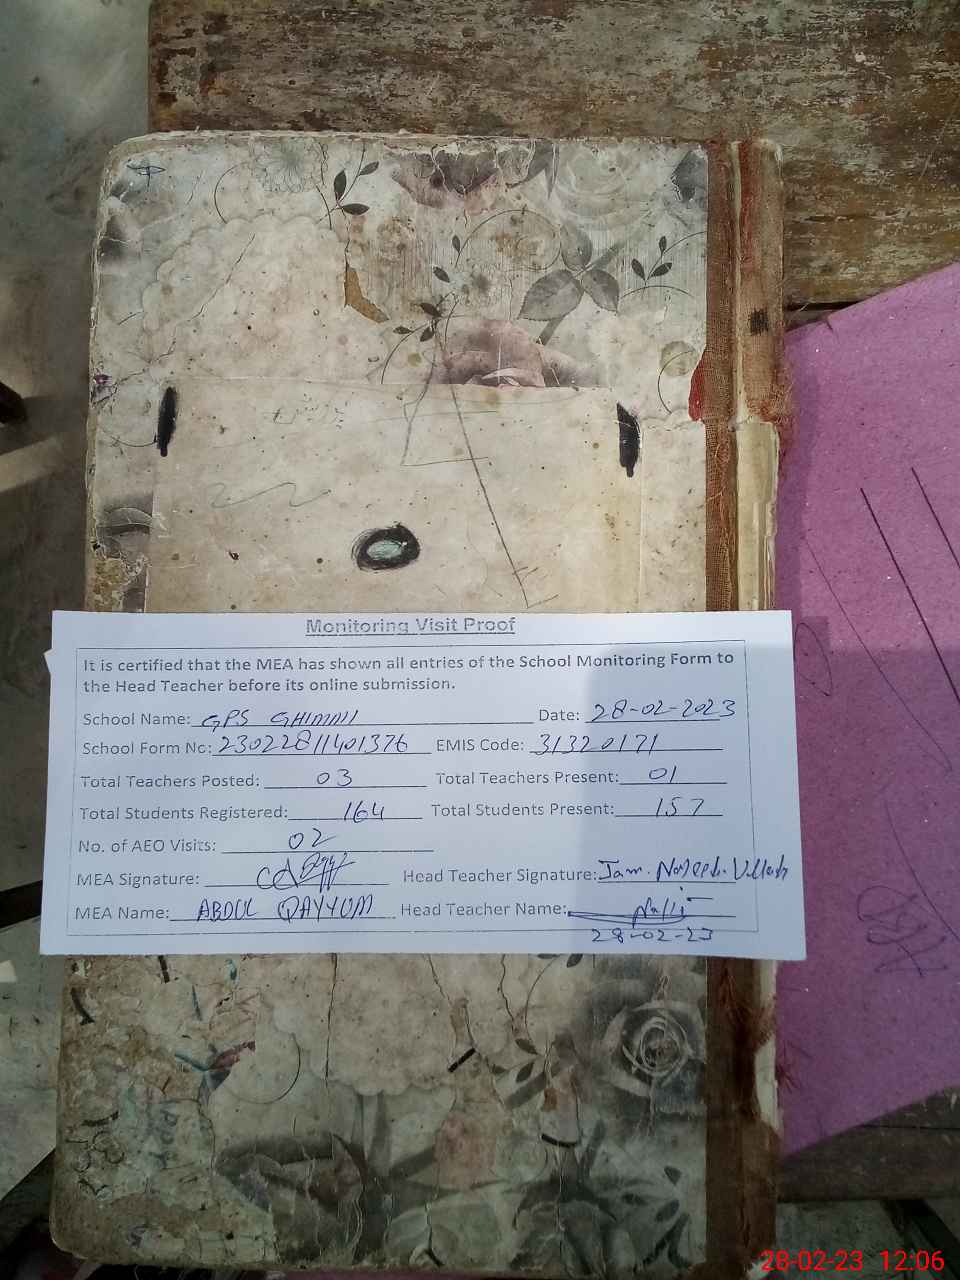 Monitoring Visit Proof
It is certified that the MEA has shown all entries of the School Monitoring Form to
the Head Teacher before its online submission.
School Name: GPS Date: 28-02-2023
School Form No: 23022811401376 EMIS Code: 31320171
Total Teachers Posted: 03 Total Teachers Present: 01
Total Students Registered: 164 Total Students Present: 157
No. of AEO Visits: 02
MEA Signature: Head Teacher Signature: Jam.
MEA Name: ABDUL QAYYUM Head Teacher Name:
28-02-23
28-02-23 12:06